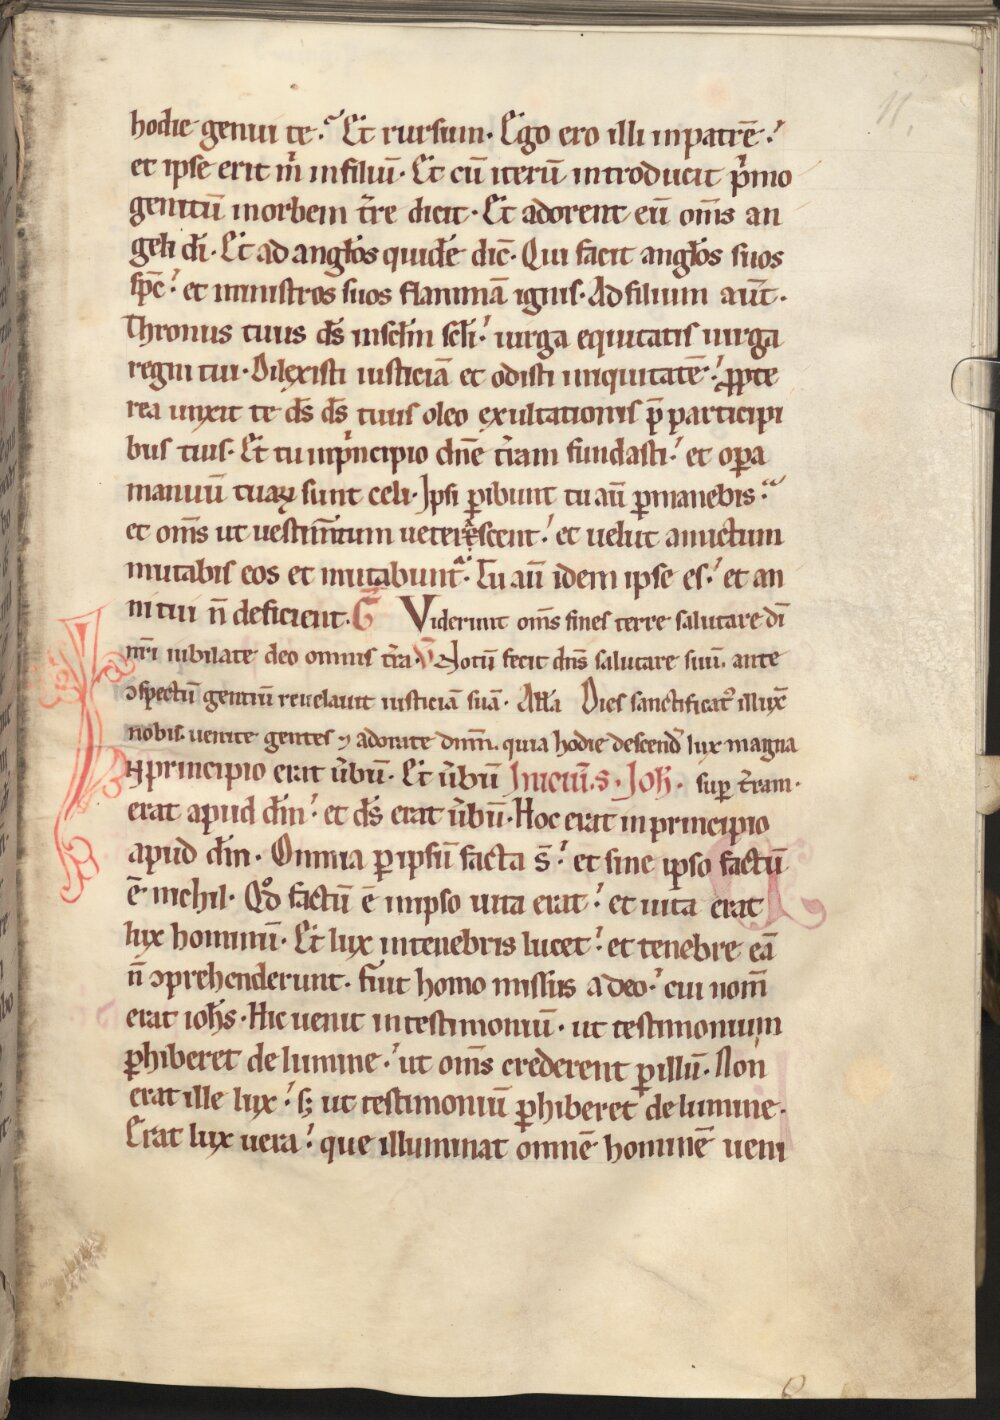 11.
hodie genui te. Et rursum. Ego ero illi inpatrē.
et ipse erit m̉ infiliū. Et cū iterū introducit p̉mo
genitū inorbem t̄re dicit. Et adorent eū om̄s an
geli dī. Et ad anglōs quidē dic̄. Qui facit anglōs suos
sp̄c. et ministros suos flammā ignis. Ad filium aūt.
Thronus tuus ds̄ insclm̄ sclī. uirga equitatis uirga
regni tui. Dilexisti iusticiā et odisti iniquitatē. ꝓpte
rea unxit te ds̄ ds̄ tuus oleo exultationis p̄ participi
bus tuis. Et tu inp̉ncipio dn̄e t̄ram fundasti. et oꝑa
manuū tuaꝝ sunt celi. Ipsi ꝑibunt tu aū ꝑmanebis.
et om̄s ut uestim̄tum ueterescent. et uelut amictum
mutabis eos et mutabunt. Tu aū idem ipse es. et an
ni tui n̄ deficient. G̅ Viderunt om̄s fines terre salutare dī
nr̄i iubilate deo omnis t̄ra. V̅ Notū fecit dn̄s salutare suū. ante
ɔspectū gentiū reuelauit iusticiā suā. Alła Dies sanctificat᷒ illux̄
nobis. uenite gentes ⁊ adorate dnm̄. quia hodie descend̄ lux magna
Inprincipio erat ūbū. Et ūbū Iniciū. s. Ioh̄. suꝑ t̄ram.
erat apud dm̄. et ds̄ erat ūbū. Hoc erat in principio
apud dm̄. Omnia ꝑ ipsū facta s̄. et sine ipso factū
ē nichil. Qd̉ factū ē inipso uita erat. et uita erat
lux hominū. Et lux intenebris lucet. et tenebre eā
n̄ ɔprehenderunt. Fuit homo missus adeo. cui nom̄
erat ioh̄s. Hic uenit intestimoniū. ut testimonium
ꝑhiberet de lumine. ut om̄s crederent ꝑ illū. Non
erat ille lux. sꝫ ut testimoniū ꝑhiberet de lumine.
Erat lux uera. que illuminat omnē hominē ueni